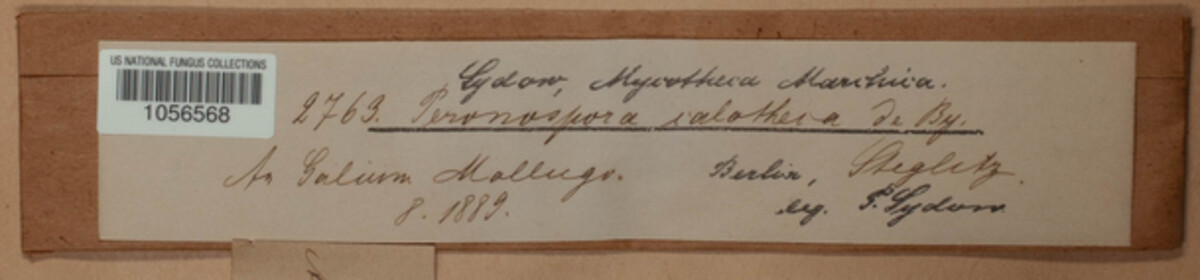 US NATIONAL FUNGUS COLLECTIONS
1056568
Sydow, Mycotheca Marchica.
2763. Peronospora calotheca De By.
An Galium Mollugo. Berlin, Steglitz.
8. 1889. leg. P. Sydow